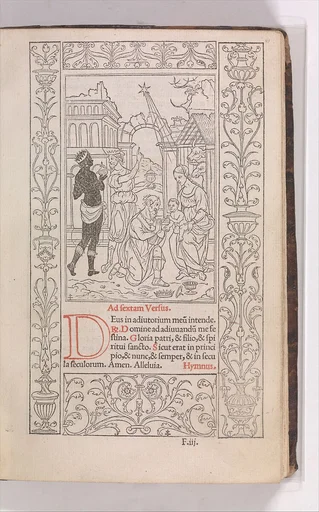 Ad sextam Versus.
Deus in adiutorium meũ intende.
R. Domine ad adiuvandũ me fe
stina. Gloria patri, & filio, & spi
ritui sancto. Sicut erat in princi
pio, & nunc, & semper, & in secu
la seculorum. Amen. Alleluia. Hymnus.
F.iij.